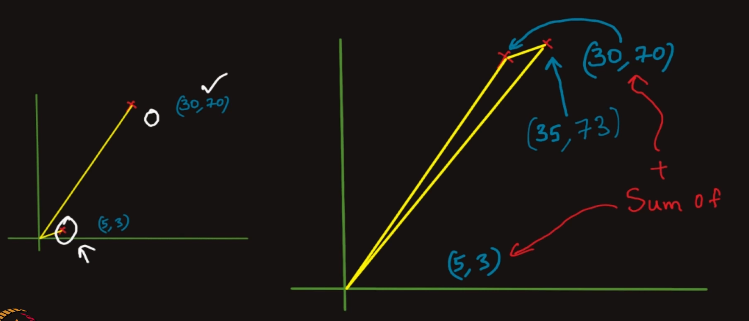 (30,70)
(5,3)
(30,70)
(35,73)
+
Sum of
(5,3)